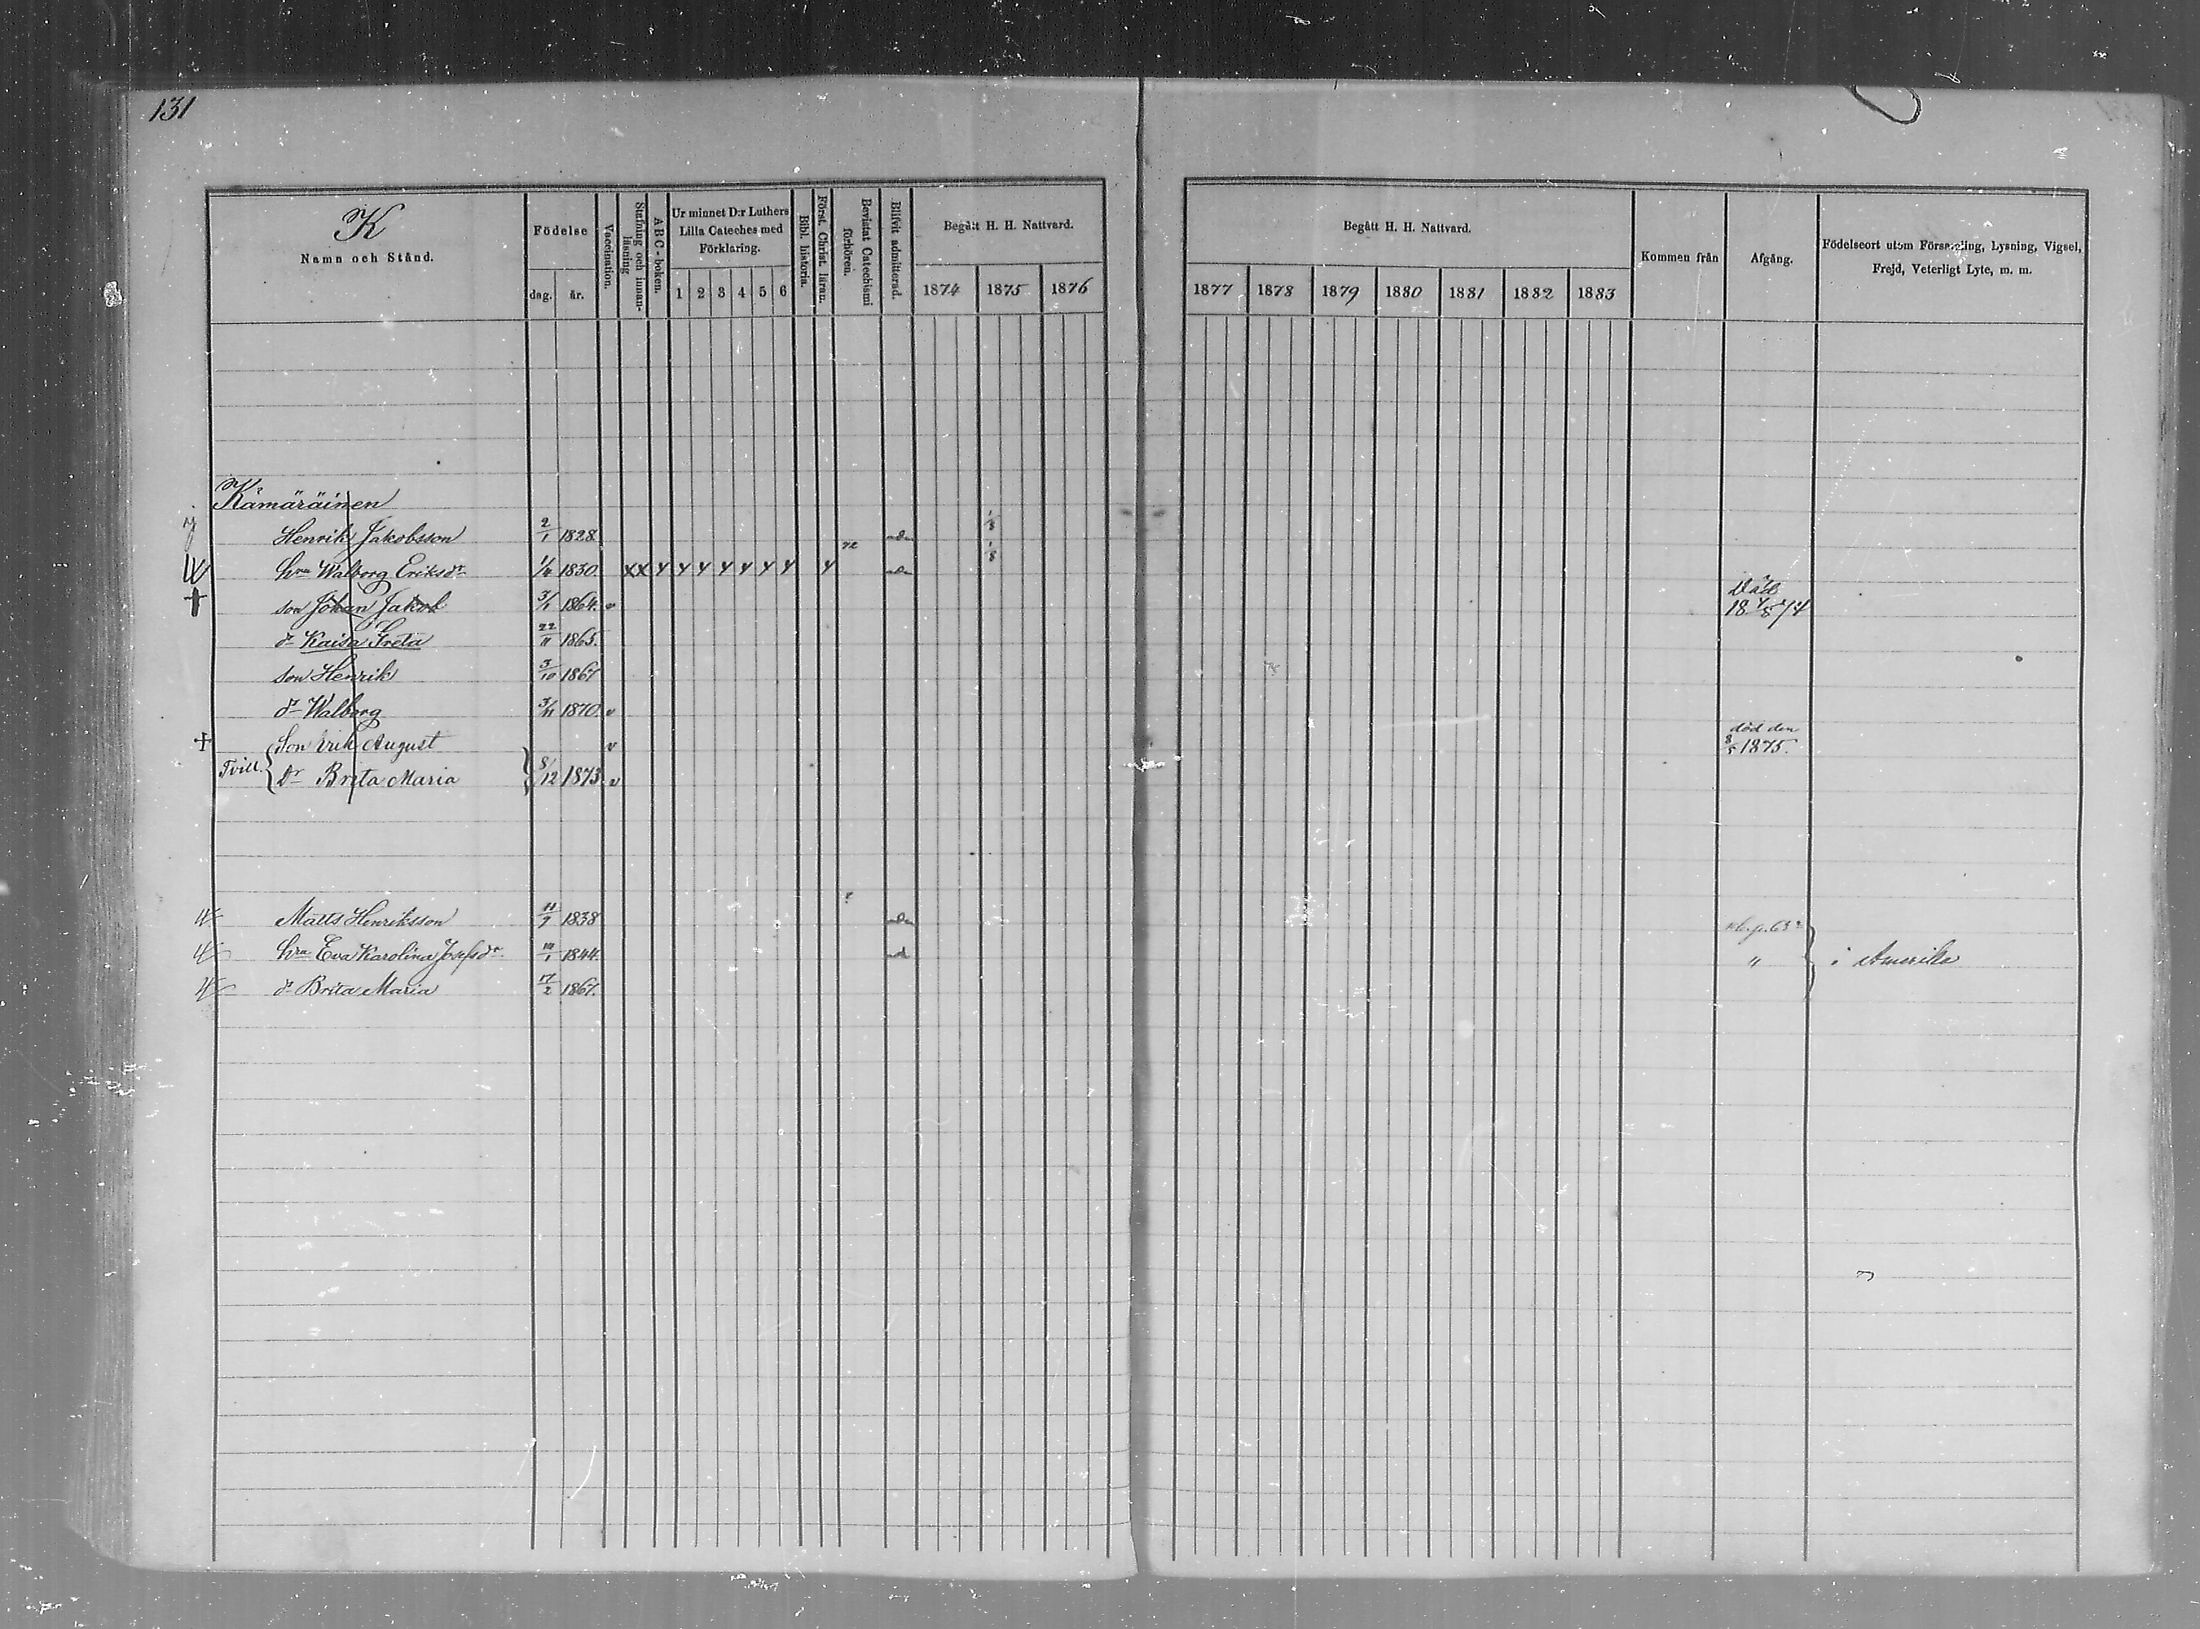 131
K
Namn och Stånd.
Födelse
dag.
år.
Vaccination.
Stafning och innan-
läsning
ABC-boken.
Ur minnet D:r Luthers
Lilla Cateches med
Förklaring.
1 2 3 4 5 6
Bibl. historia.
Först. Christ. läran.
Bevistat Catechismi
förhören.
Blifvit admitterad.
Begått H. H. Nattvard.
1874 1875 1876
Begått H. H. Nattvard.
1877 1878 1879 1880 1881 1882 1883
Kommen från
Afgång.
Födelseort utom Församling, Lysning, Vigsel,
Frejd, Veterligt Lyte, m. m.
Kämäräinen
Henrik Jakobsson 2/1 1828 1/8
hru Walborg Eriksdr 1/4 1830 x x y y y y y y y y 1/8
son Johan Jakob 3/1 1864. v Död 18 4/8 74
dr Kaisa Greta 22/11 1865.
son Henrik 3/10 1867
dr Walborg 3/11 1870 v
Son Erik August v död den 8/5 1875.
Tvill. Dr Brita Maria 8/12 1873 v
Matts Henriksson 11/9 1838
hru Eva Karolina Josefsdr 10/1 1844 " i Amerika
dr Brita Maria 17/2 1867.